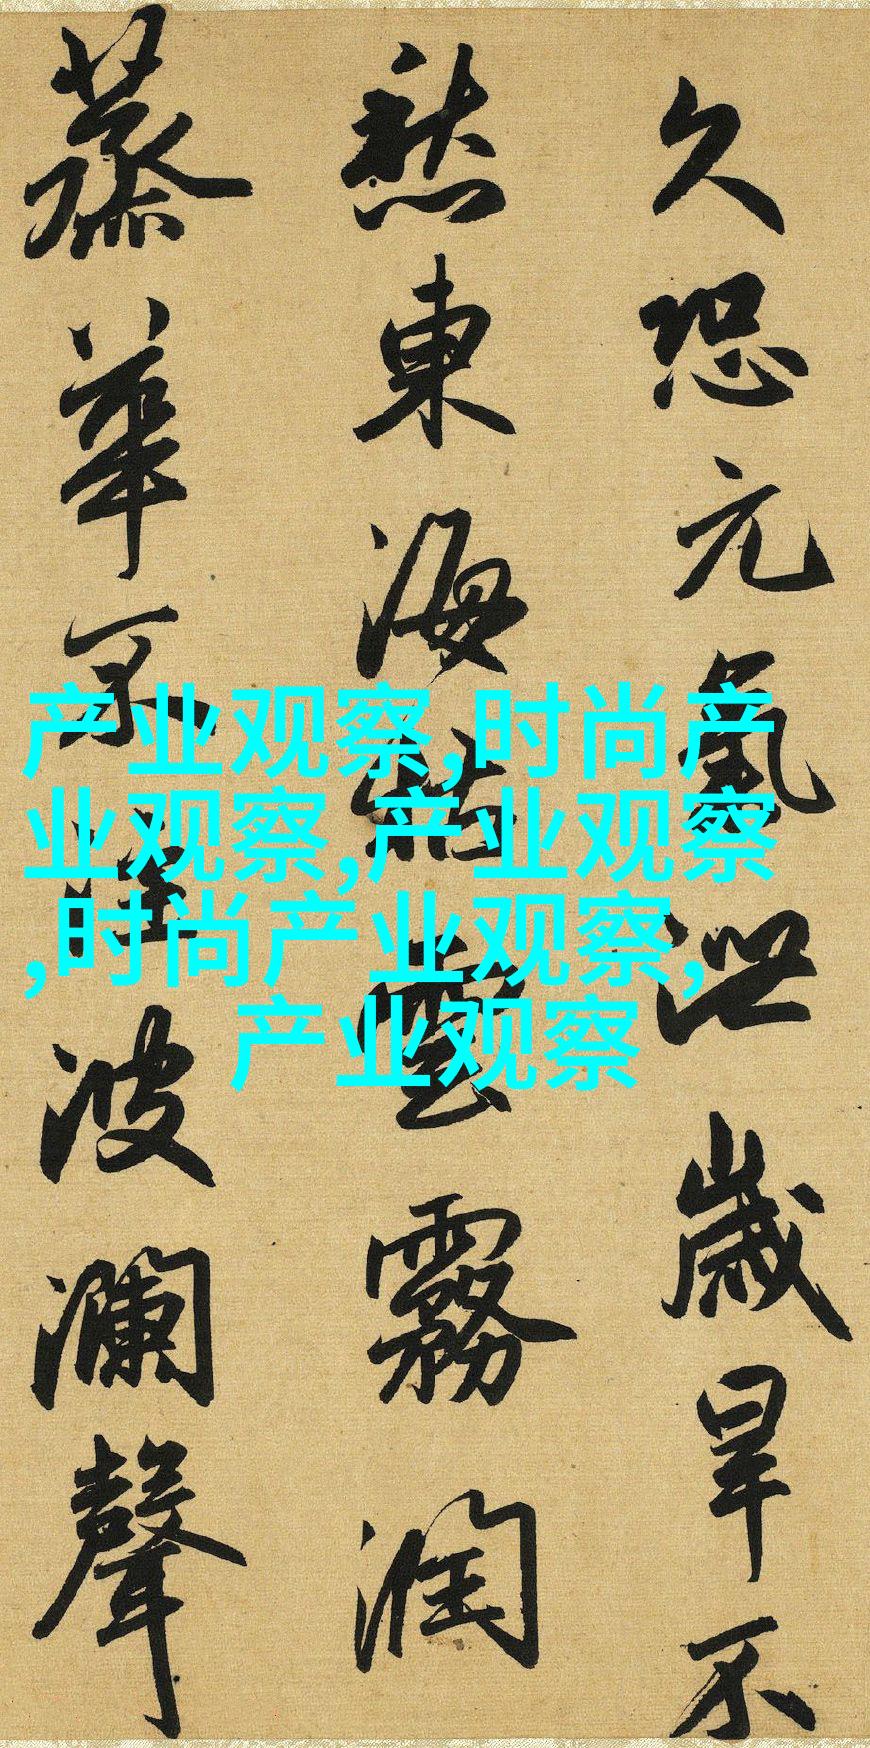 久恐元氣泄歲旱不
愁東海枯雲霧潤
蒸華不注波瀾聲
产业观察,时尚产
业观察,产业观察
,时尚产业观察,
产业观察